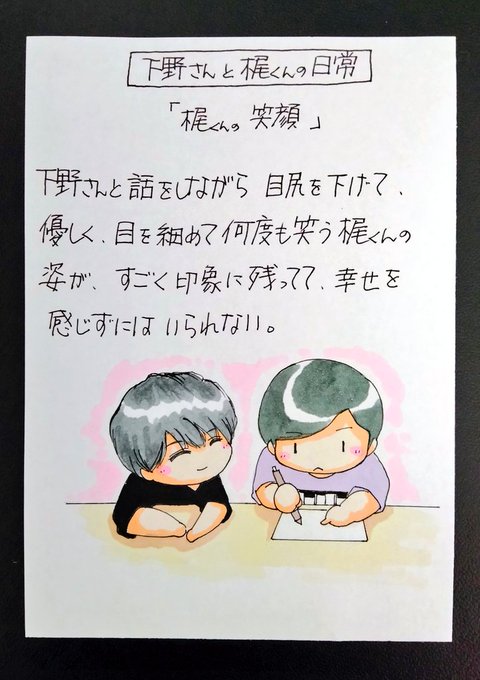 下野さんと梶くんの日常
「梶くんの 笑顔」
下野さんと話をしながら 目尻を下げて、
優しく、目を細めて何度も笑う梶くんの
姿が、すごく印象に残ってて、幸せを
感じずにはいられない。